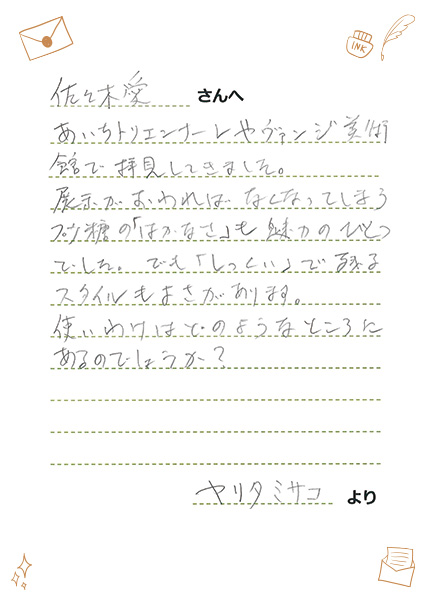 INK
佐々木愛 さんへ
あいちトリエンナーレやヴァンジ美術
館で拝見してきました。
展示がおわればなくなってしまう
砂糖の「はかなさ」も魅力のひとつ
でした。でも「しっくい」で残る
スタイルもよさがあります。
使いわけはどのようなところに
あるのでしょうか?
ヤリタミサコ より